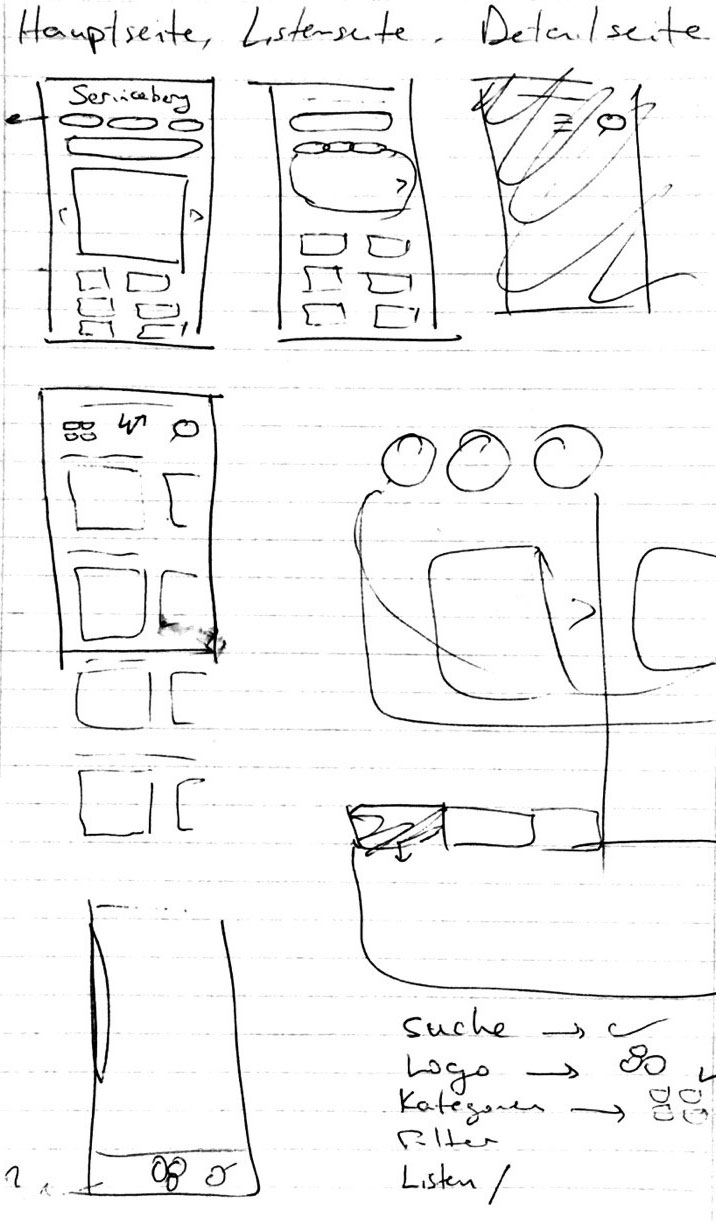 Hauptseite, Listenseite, Detailseite
Serviceberg
Suche →
Logo →
Kategorien →
Filter
Listen /